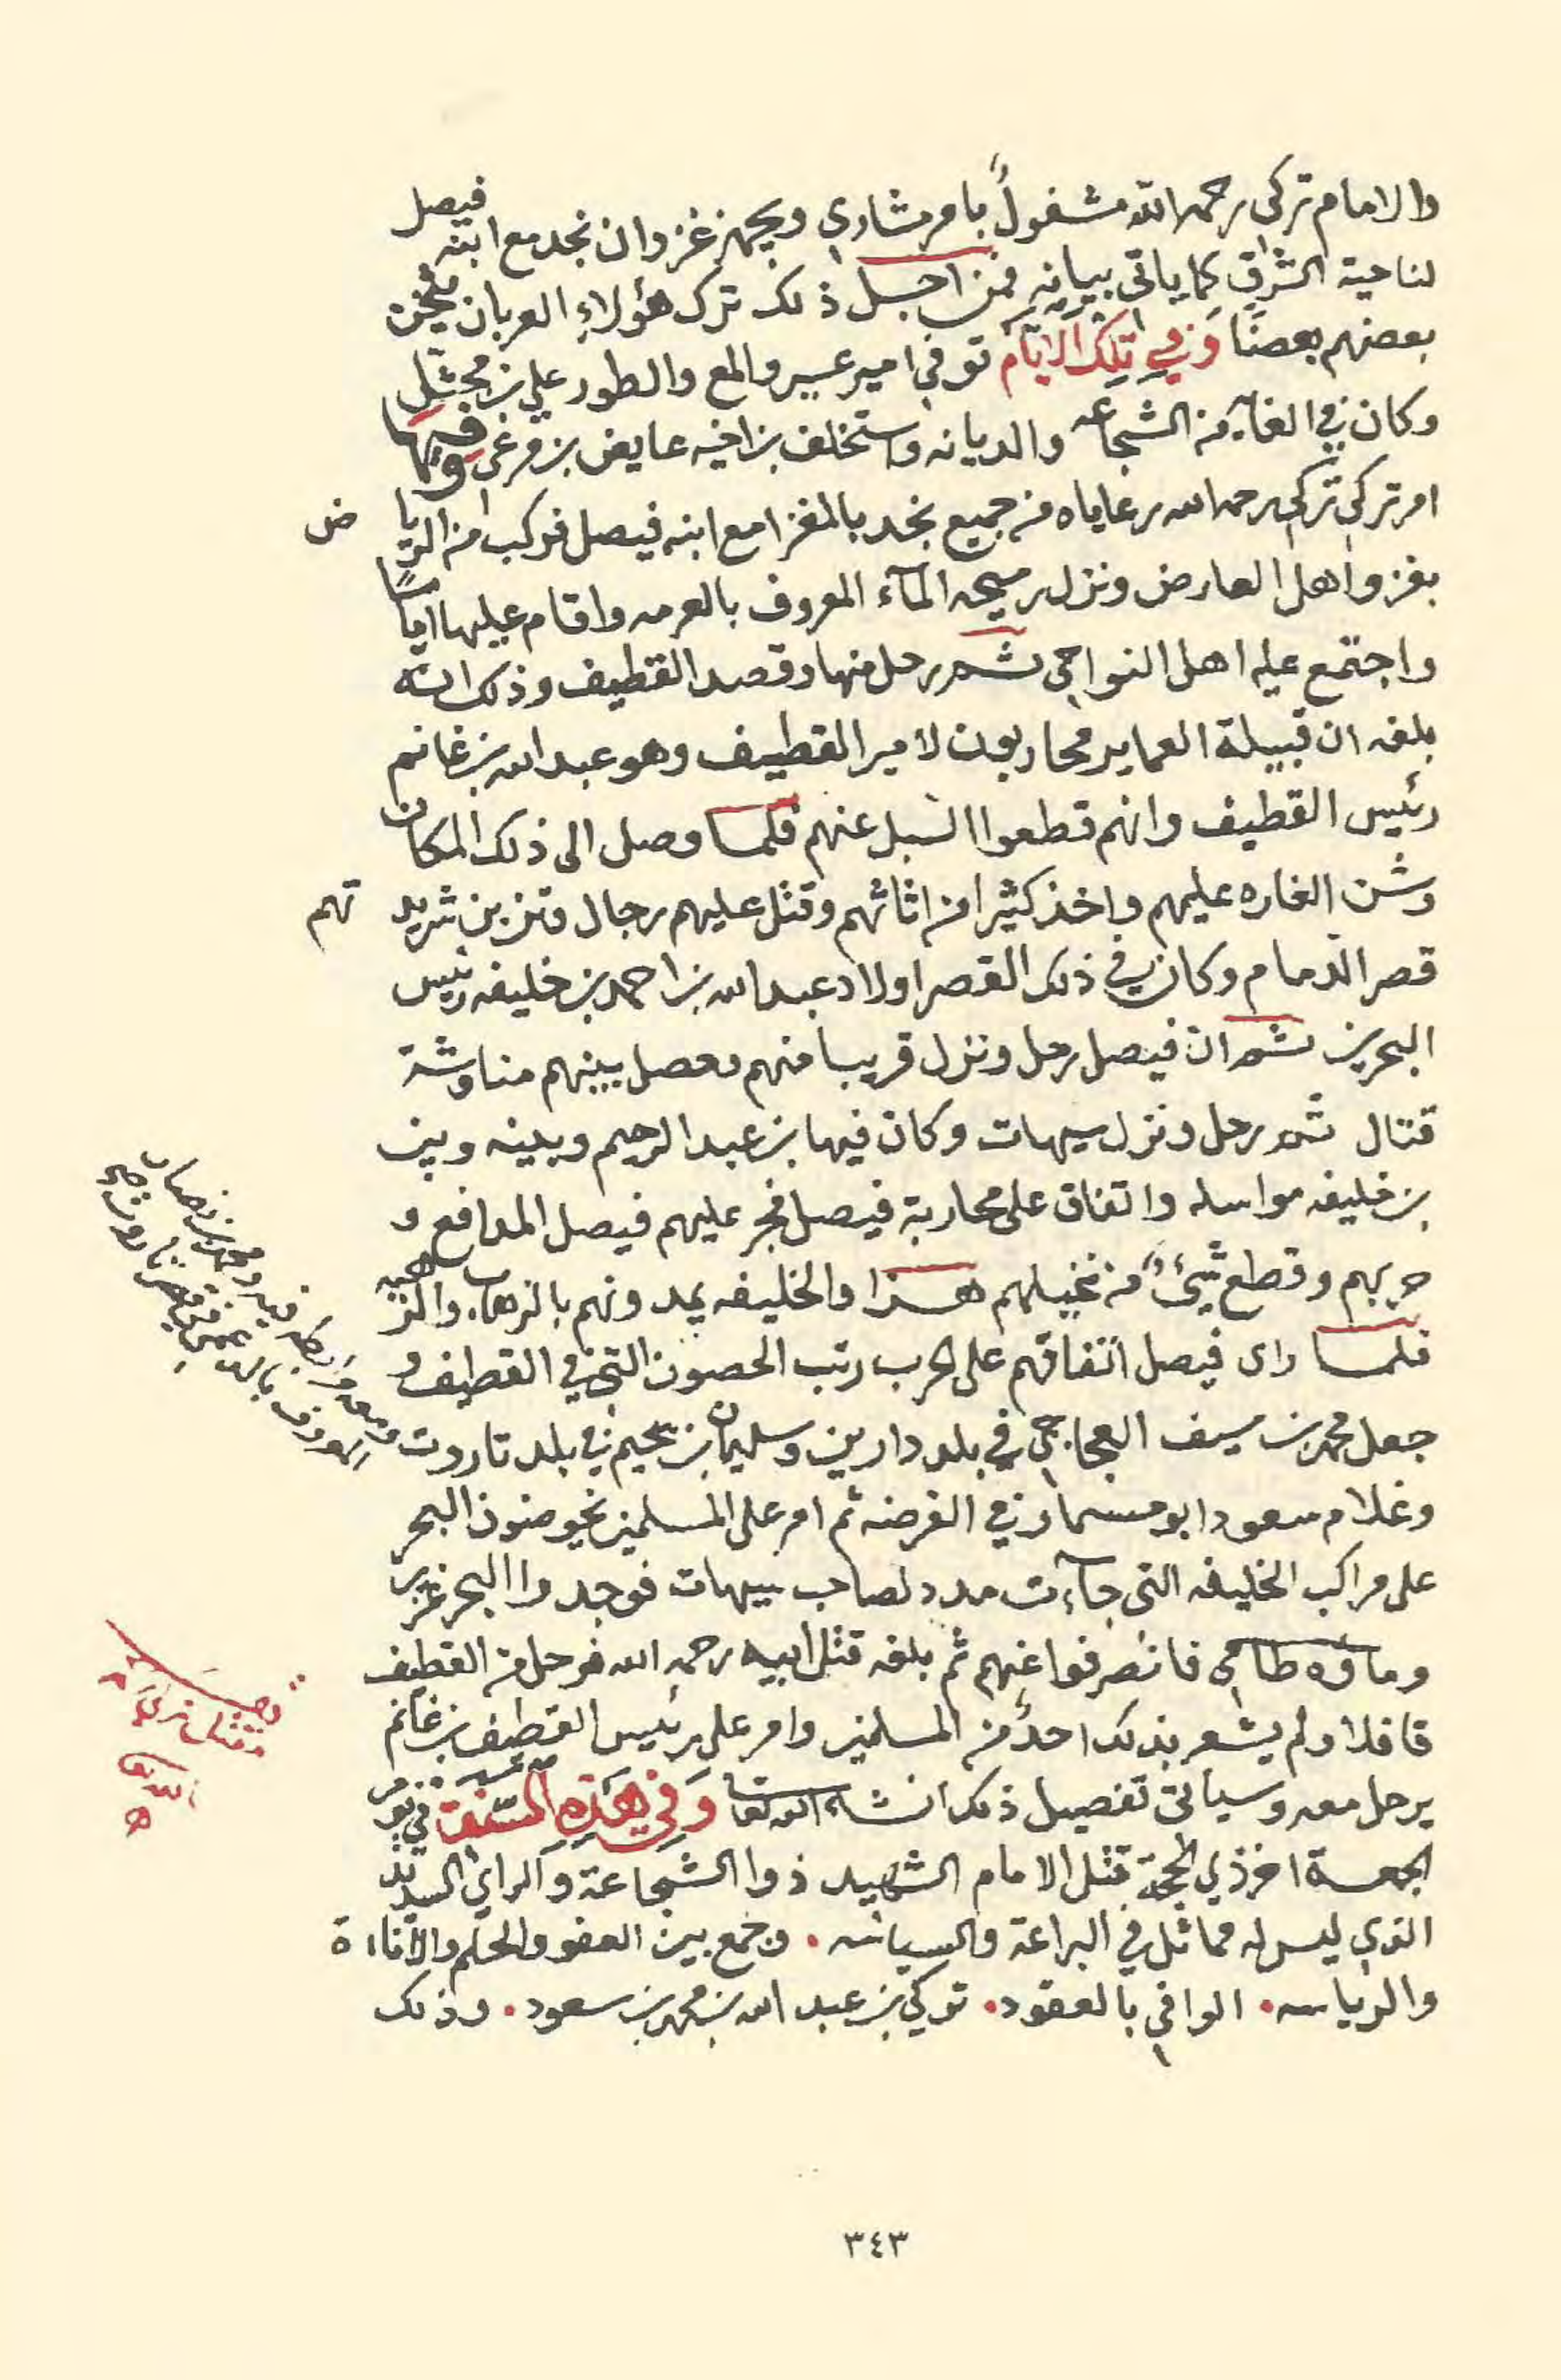 والامام تركي رحمه الله مشغولٌ بامر مشاري ويجهز غزوان نجد مع ابنه فيصل
لناحية الشرق كما ياتي بيانه فمن اجل ذلك ترك هؤلاءِ العربان
بعضهم بعضًا وفي تلك الايام توفي امير عسير والمع والطور علي بن مجثل
وكان في الغايه من الشجاعه والديانه واستخلف بن اخيه عايض بن مرعي وفيها
امر تركي تركي رحمه الله رعاياه من جميع نجد بالمغزا مع ابنه فيصل فركب من الرياض
بغزو اهل العارض ونزل رميحه المآء المعروف بالعرمه واقام عليها ايامًا
واجتمع عليه اهل النواحي ثم رحل منها وقصد القطيف وذلك انه
بلغه ان قبيلة العماير محاربون لامير القطيف وهو عبدالله بن غانم
رئيس القطيف وانهم قطعوا السبل عنهم فلما وصل الى ذلك المكان
وشن الغاره عليهم واخذ كثيرا من اثاثهم وقتل عليهم رجال وتزبن شريدتهم
قصر الدمام وكان في ذلك القصر اولاد عبدالله بن احمد بن خليفه رئيس
البحرين ثم ان فيصل رحل ونزل قريبا منهم وحصل بينهم مناوشة
قتال ثم رحل ونزل سيهات وكان فيها بن عبدالرحيم وبينه وبين
بن خليفه مواسله واتفاق على محاربة فيصل فجر عليهم فيصل المدافع و
حربهم وقطع شيئٌ من نخيلهم هذا والخليفه يمدونهم بالزهاب والزهبه
فلما راى فيصل اتفاقهم على الحرب رتب الحصون التي في القطيف و
جعل محمد بن سيف العجاجي في بلد دارين وسليمان بن سحيم في بلد تاروت
وغلام سعود ابو مسمار في الفرضه ثم امر على المسلمين يخوضون البحر
على مراكب الخليفه التي جآءت مدد لصاحب سيهات فوجدوا البحر غزير
وماؤه طامي فانصرفوا عنهم ثم بلغه قتل ابيه رحمه الله فرحل من القطيف
قافلا ولم يشعر بذلك احدٌ من المسلمين وامر على رئيس القطيف بن غانم
يرحل معه وسياتي تفصيل ذلك انشاء الله تعا وفي هذه السنة في يوم
الجمعة اخر ذي الحجة قتل الامام الشهيد ذوا الشجاعة والراي السديد
الذي ليس له مماثل في البراعة والسياسه . وجمع بين العفو والحلم والاناءة
والرياسه . الوافي بالعقود . تركي بن عبد الله بن محمد بن سعود . وذلك
مقتل تركي
٣٤٣